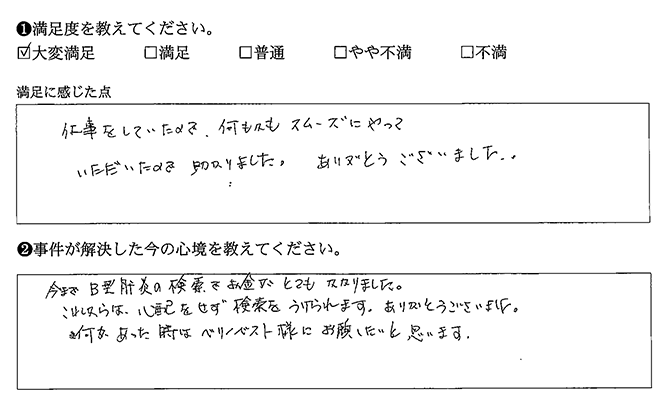 ❶満足度を教えてください。
☑大変満足 □満足 □普通 □やや不満 □不満
満足に感じた点
仕事をしていたので、何もかも スムーズにやって
いただいたので 助かりました。 ありがとう ございました。
❷事件が解決した今の心境を教えてください。
今まで B型肝炎の検索で お金が とても かかりました。
これからは、心配をせず 検索を うけられます。ありがとうございました。
何か あった 時は ベリーベスト様に お願いしたいと 思います。